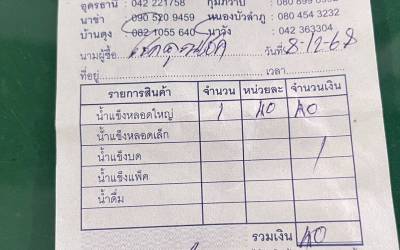 อุดรธานี : 042 221758 กุมภวาปี : 080 899
นาข่า : 090 520 9459 หนองบัวลำภู : 080 454 3232
บ้านดุง : 082 1055 640 นาวัง : 042 363304
นามผู้ซื้อ วันที่ 8-12-68
ที่อยู่ เวลา
รายการสินค้า จำนวน หน่วยละ จำนวนเงิน
น้ำแข็งหลอดใหญ่ 1 40 40
น้ำแข็งหลอดเล็ก
น้ำแข็งบด
น้ำแข็งแพ็ค
น้ำดื่ม
รวมเงิน 40